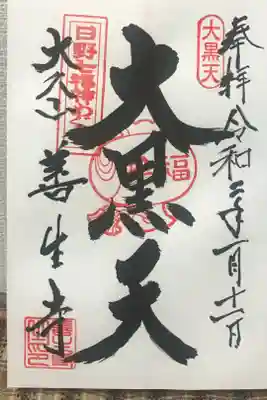 奉拝 令和二年一月十一日
大黒天
大黒天
福
日野七福神の内
善生寺